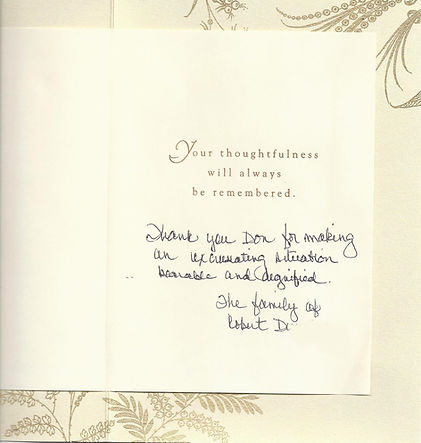 Your thoughtfulness
will always
be remembered.
Thank you Don for making
an excruciating situation
bearable and dignified.
The family of
Robert Di